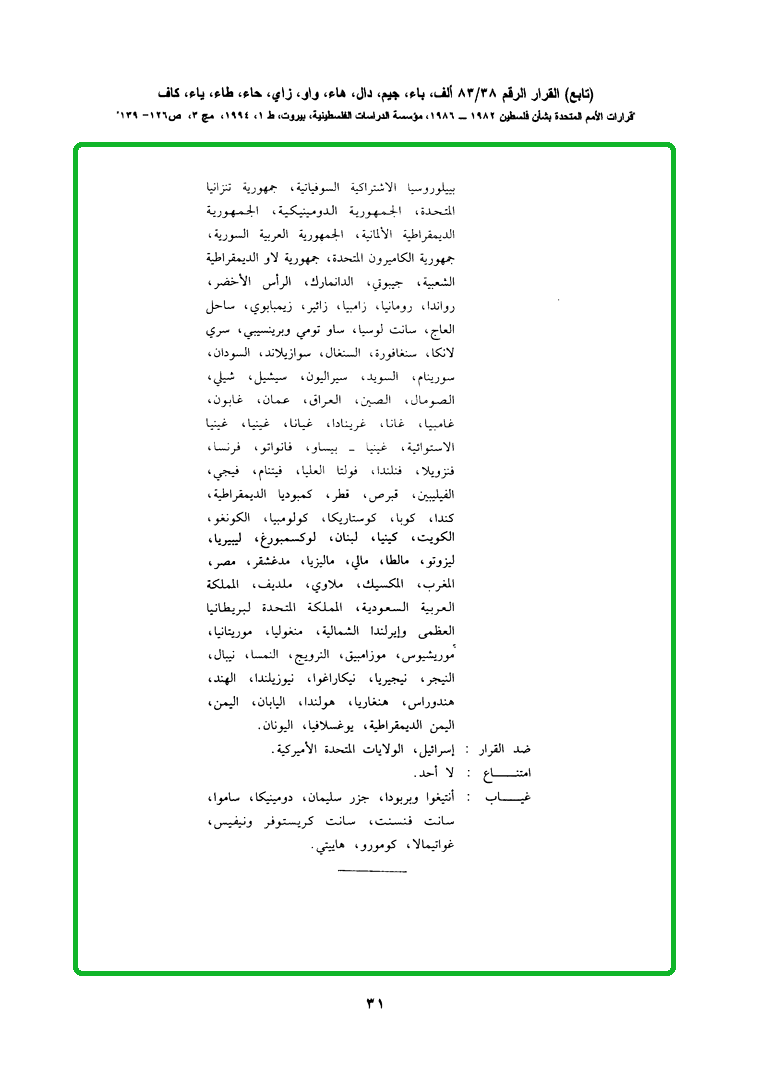 (تابع) القرار الرقم ٨٣/٣٨ ألف، باء، جيم، دال، هاء، واو، زاي، حاء، طاء، ياء، كاف
"قرارات الأمم المتحدة بشأن فلسطين ١٩٨٢ ــ ١٩٨٦، مؤسسة الدراسات الفلسطينية، بيروت، ط ١، ١٩٩٤، مج ٣، ص١٢٦- ١٣٩"
بييلوروسيا الاشتراكية السوفياتية، جمهورية تنزانيا
المتحدة، الجمهورية الدومينيكية، الجمهورية
الديمقراطية الألمانية، الجمهورية العربية السورية،
جمهورية الكاميرون المتحدة، جمهورية لاو الديمقراطية
الشعبية، جيبوتي، الدانمارك، الرأس الأخضر،
رواندا، رومانيا، زامبيا، زائير، زيمبابوي، ساحل
العاج، سانت لوسيا، ساو تومي وبرينسيبي، سري
لانكا، سنغافورة، السنغال، سوازيلاند، السودان،
سورينام، السويد، سيراليون، سيشيل، شيلي،
الصومال، الصين، العراق، عمان، غابون،
غامبيا، غانا، غرينادا، غيانا، غينيا، غينيا
الاستوائية، غينيا ـ بيساو، فانواتو، فرنسا،
فنزويلا، فنلندا، فولتا العليا، فيتنام، فيجي،
الفيليبين، قبرص، قطر، كمبوديا الديمقراطية،
كندا، كوبا، كوستاريكا، كولومبيا، الكونغو،
الكويت، كينيا، لبنان، لوكسمبورغ، ليبيريا،
ليزوتو، مالطا، مالي، ماليزيا، مدغشقر، مصر،
المغرب، المكسيك، ملاوي، ملديف، المملكة
العربية السعودية، المملكة المتحدة لبريطانيا
العظمى وإيرلندا الشمالية، منغوليا، موريتانيا،
موريشيوس، موزامبيق، النرويج، النمسا، نيبال،
النيجر، نيجيريا، نيكاراغوا، نيوزيلندا، الهند،
هندوراس، هنغاريا، هولندا، اليابان، اليمن،
اليمن الديمقراطية، يوغسلافيا، اليونان.
ضد القرار : إسرائيل، الولايات المتحدة الأميركية.
امتنـــــاع : لا أحد.
غيـــــاب : أنتيغوا وبربودا، جزر سليمان، دومينيكا، ساموا،
سانت فنسنت، سانت كريستوفر ونيفيس،
غواتيمالا، كومورو، هاييتي.
٣١